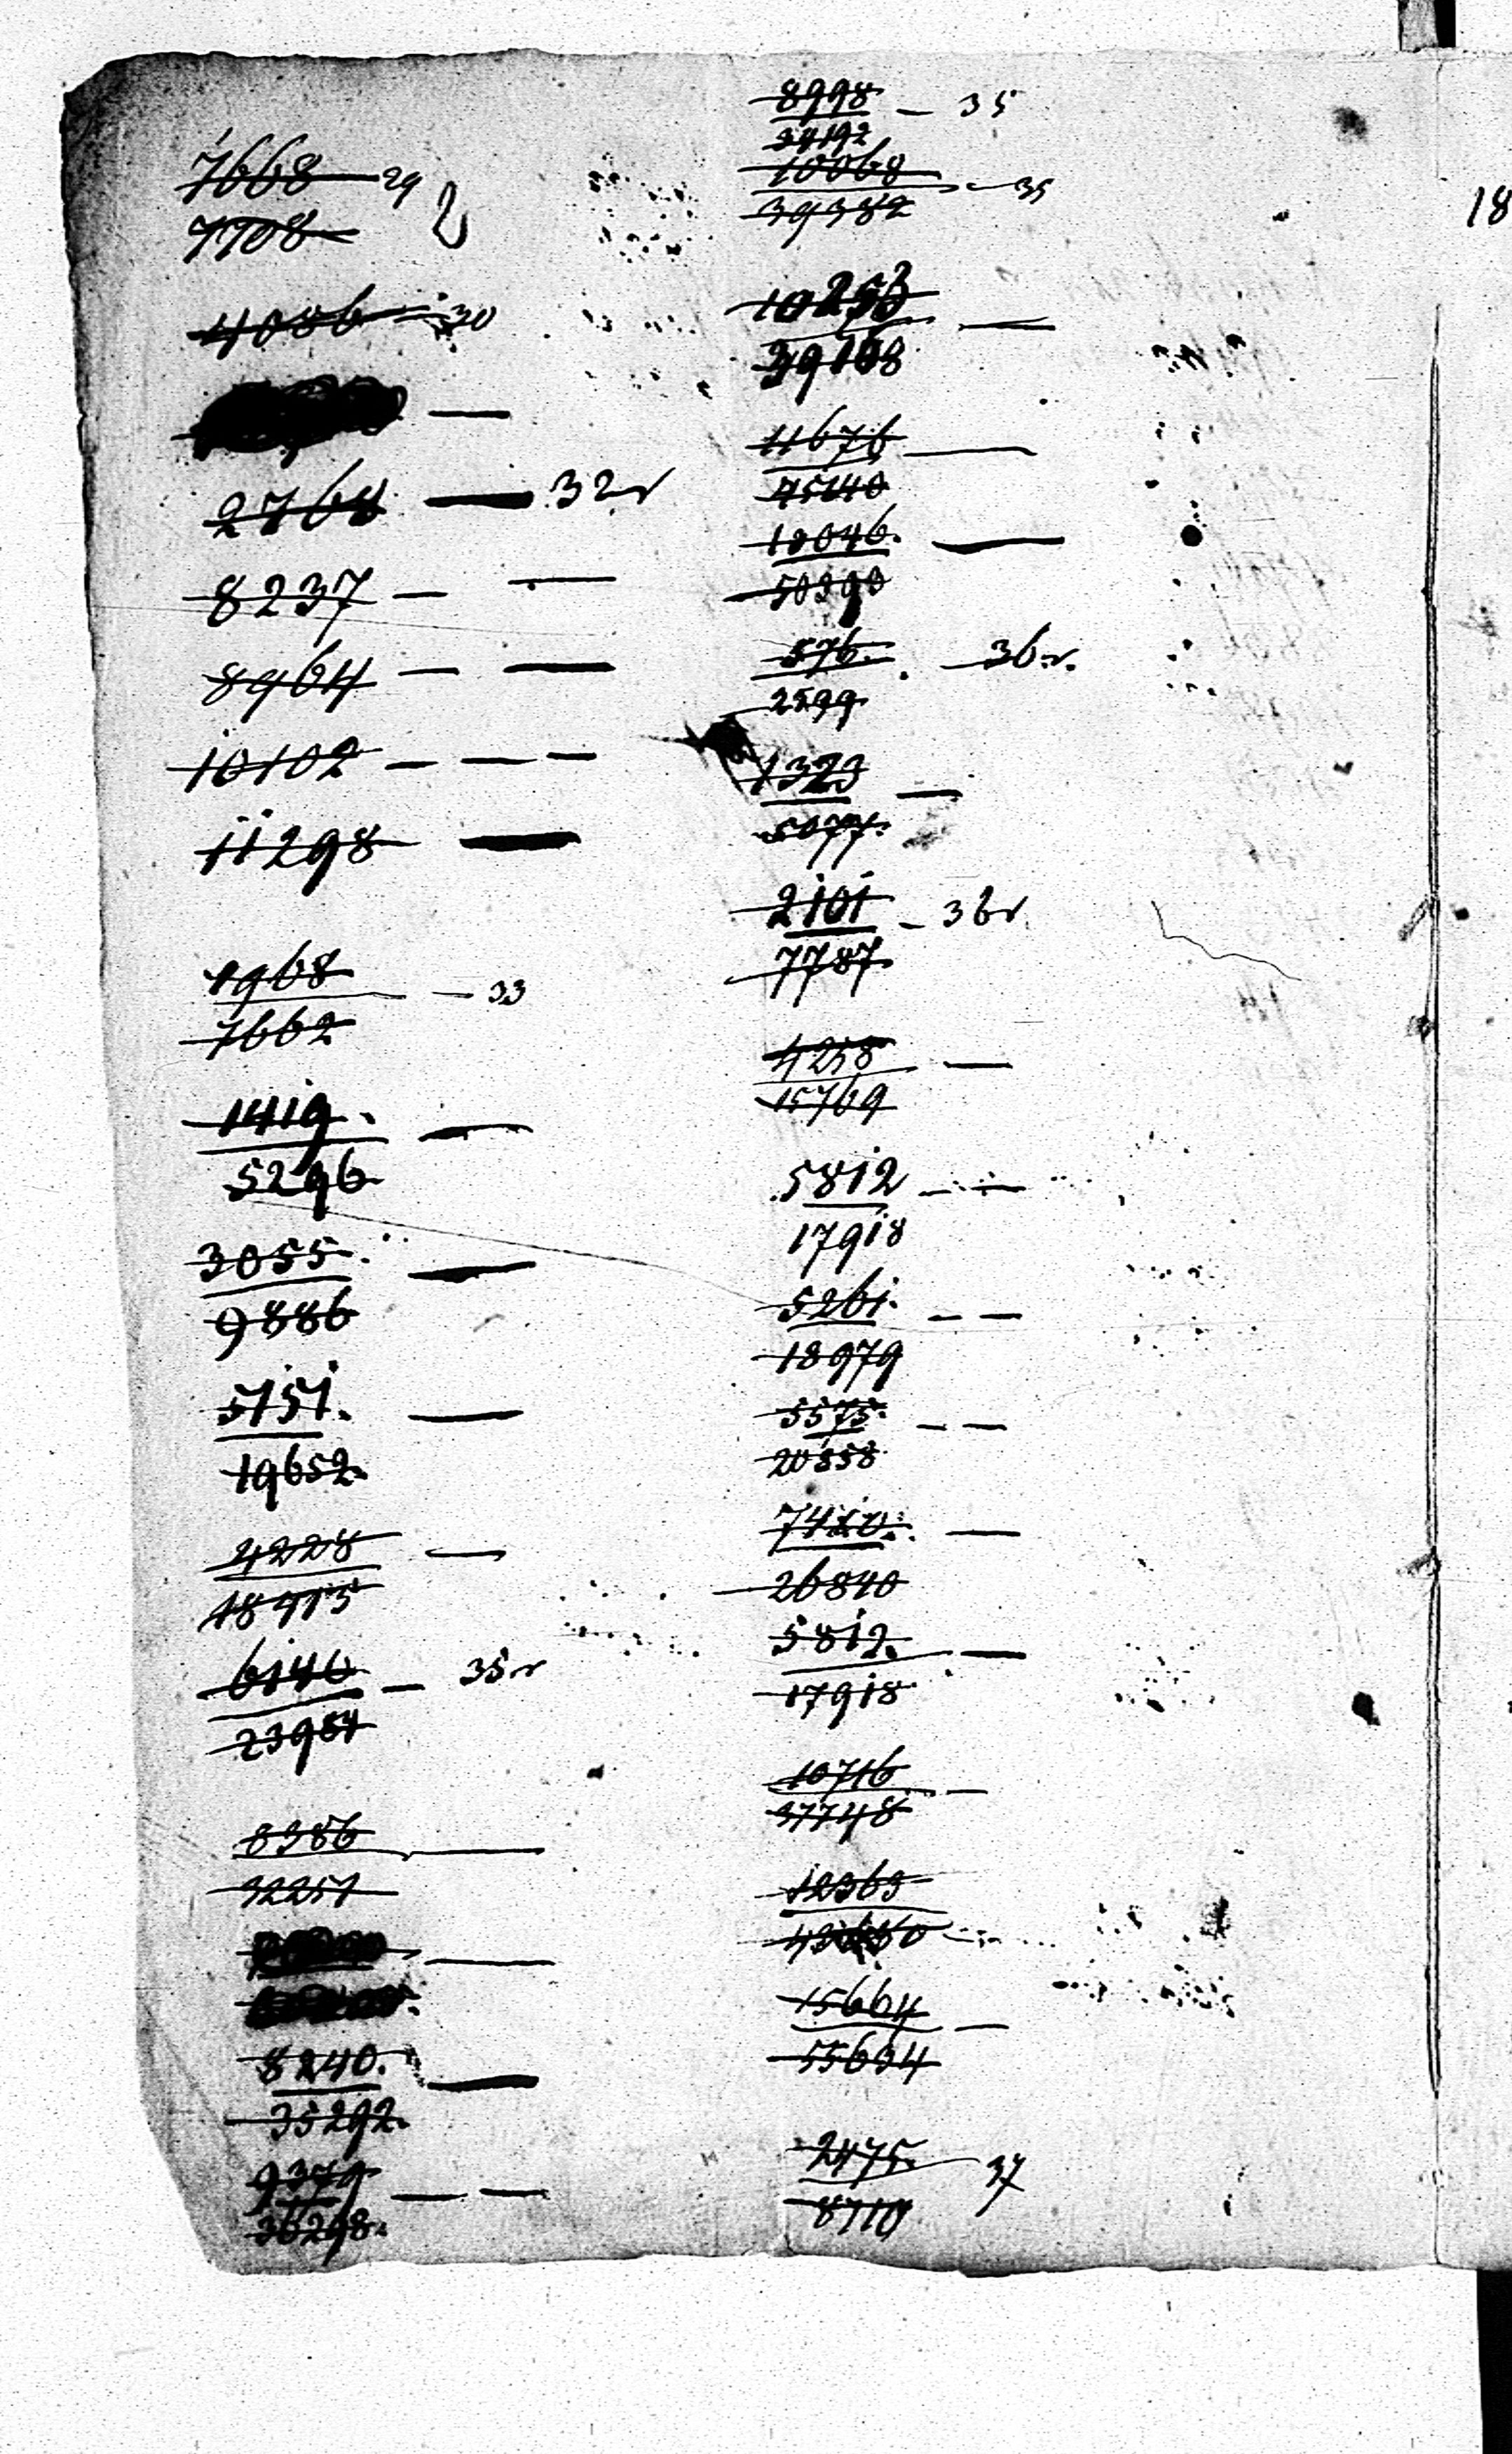 7668 - 29
7708
4086 - 30
2768 — 32 r
8237 — —
8964 — —
10102 — — —
11298 —
1968 — 33
7662
1419. —
5296
3055. —
9886
5151. —
19652.
4228 —
18415
6146 — 35 r
23954
8386 —
32251
8240. —
35292.
9379 — —
36298.
8998 — 35
34192
10068 — 35
39382
11676 —
45140
12046. —
50390
576. — 36 r.
2599
1323 —
5077.
2101 — 36 r
7787.
4258 —
15769
5812 — —
17918
5261. — —
18979
5575. — —
20858
7420. —
26840
5812. —
17918
10716 —
37748
12363
15664 —
55694
2475. — 37
8710
18